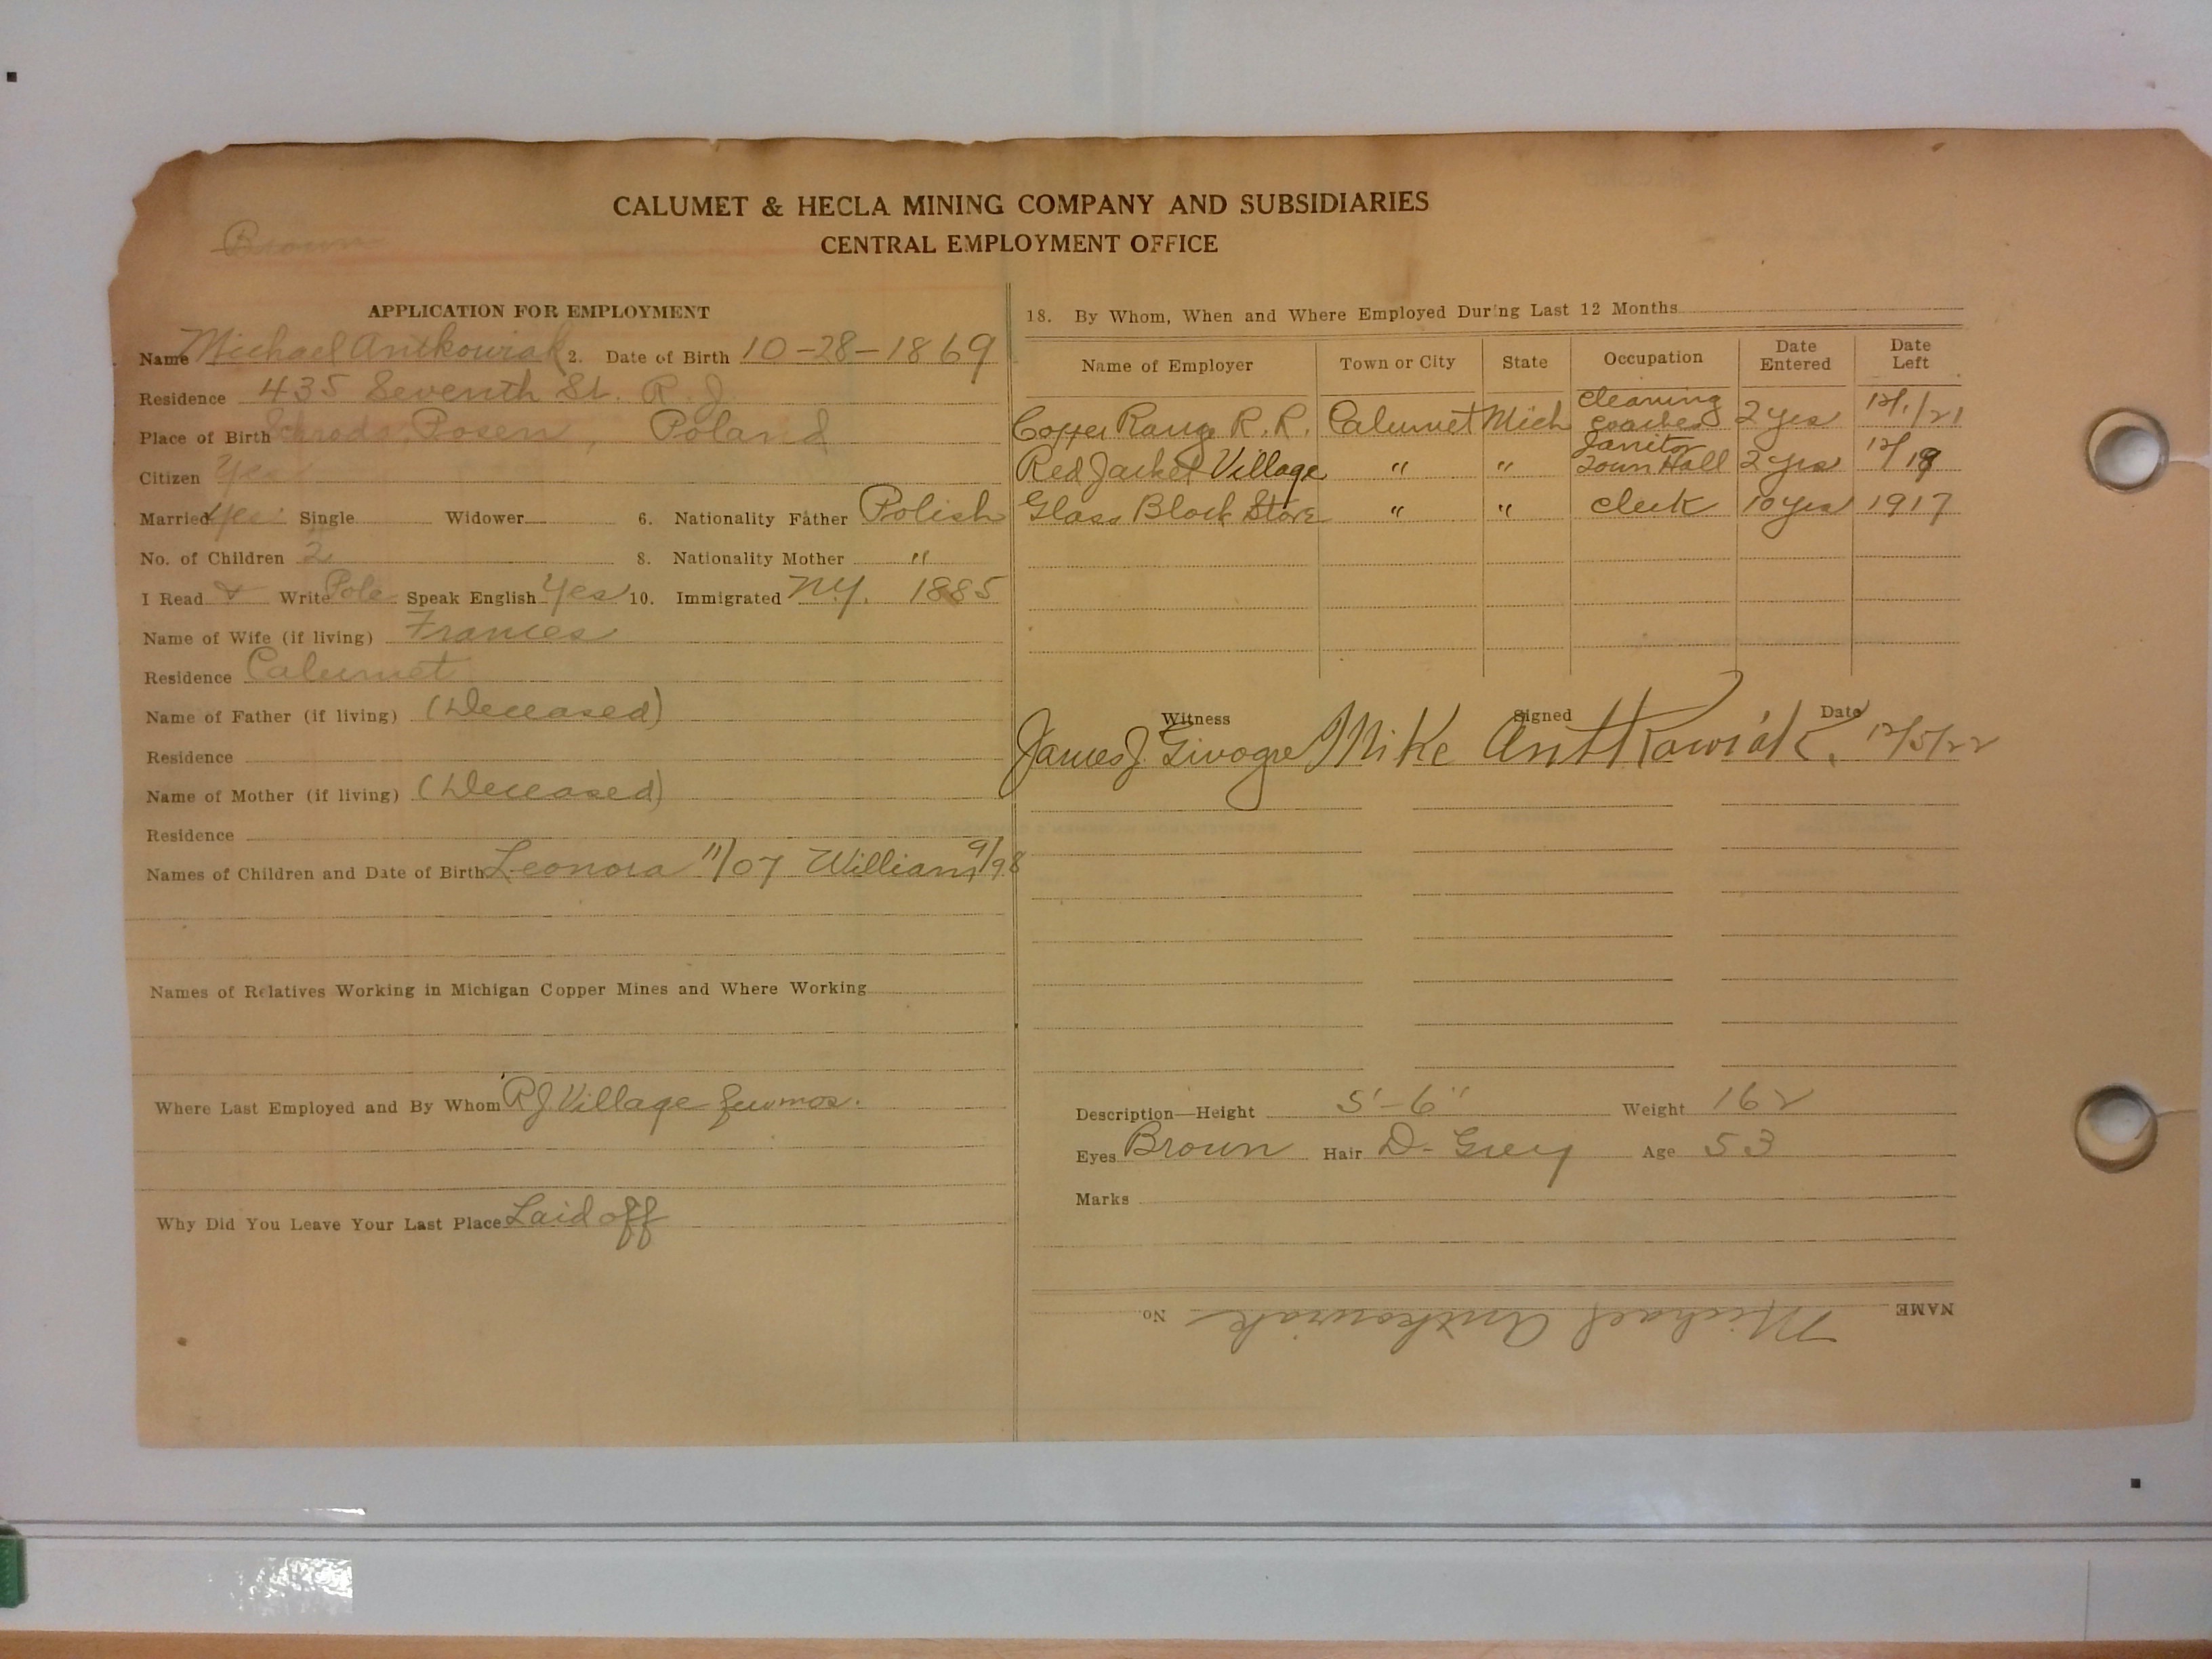 CALUMET & HECLA MINING COMPANY AND SUBSIDIARIES
CENTRAL EMPLOYMENT OFFICE
Brown
APPLICATION FOR EMPLOYMENT
Name Michael Antkowiak 2. Date of Birth 10-28-1869
Residence 435 Seventh St. R.J.
Place of Birth Posen, Poland
Citizen Yes
Married Yes Single Widower 6. Nationality Father Polish
No. of Children 2 8. Nationality Mother "
I Read & Write Pole Speak English Yes 10. Immigrated N.Y. 1885
Name of Wife (if living) Frances
Residence Calumet
Name of Father (if living) (Deceased)
Residence
Name of Mother (if living) (Deceased)
Residence
Names of Children and Date of Birth Leonora 11/07 William 9/98
Names of Relatives Working in Michigan Copper Mines and Where Working
Where Last Employed and By Whom R.J. Village few mos.
Why Did You Leave Your Last Place Laid off
18. By Whom, When and Where Employed During Last 12 Months
Name of Employer Town or City State Occupation Date Entered Date Left
Copper Range R.R. Calumet Mich cleaning coaches 2 yrs 12/1/21
Red Jacket Village " " Janitor Town Hall 2 yrs 12/19
Glass Block Store " " clerk 10 yrs 1917
Witness Signed Date
James J. Mike Antkowiak. 12/5/22
Description—Height 5'-6" Weight 162
Eyes Brown Hair D-Grey Age 53
Marks
NAME Michael Antkowiak No.